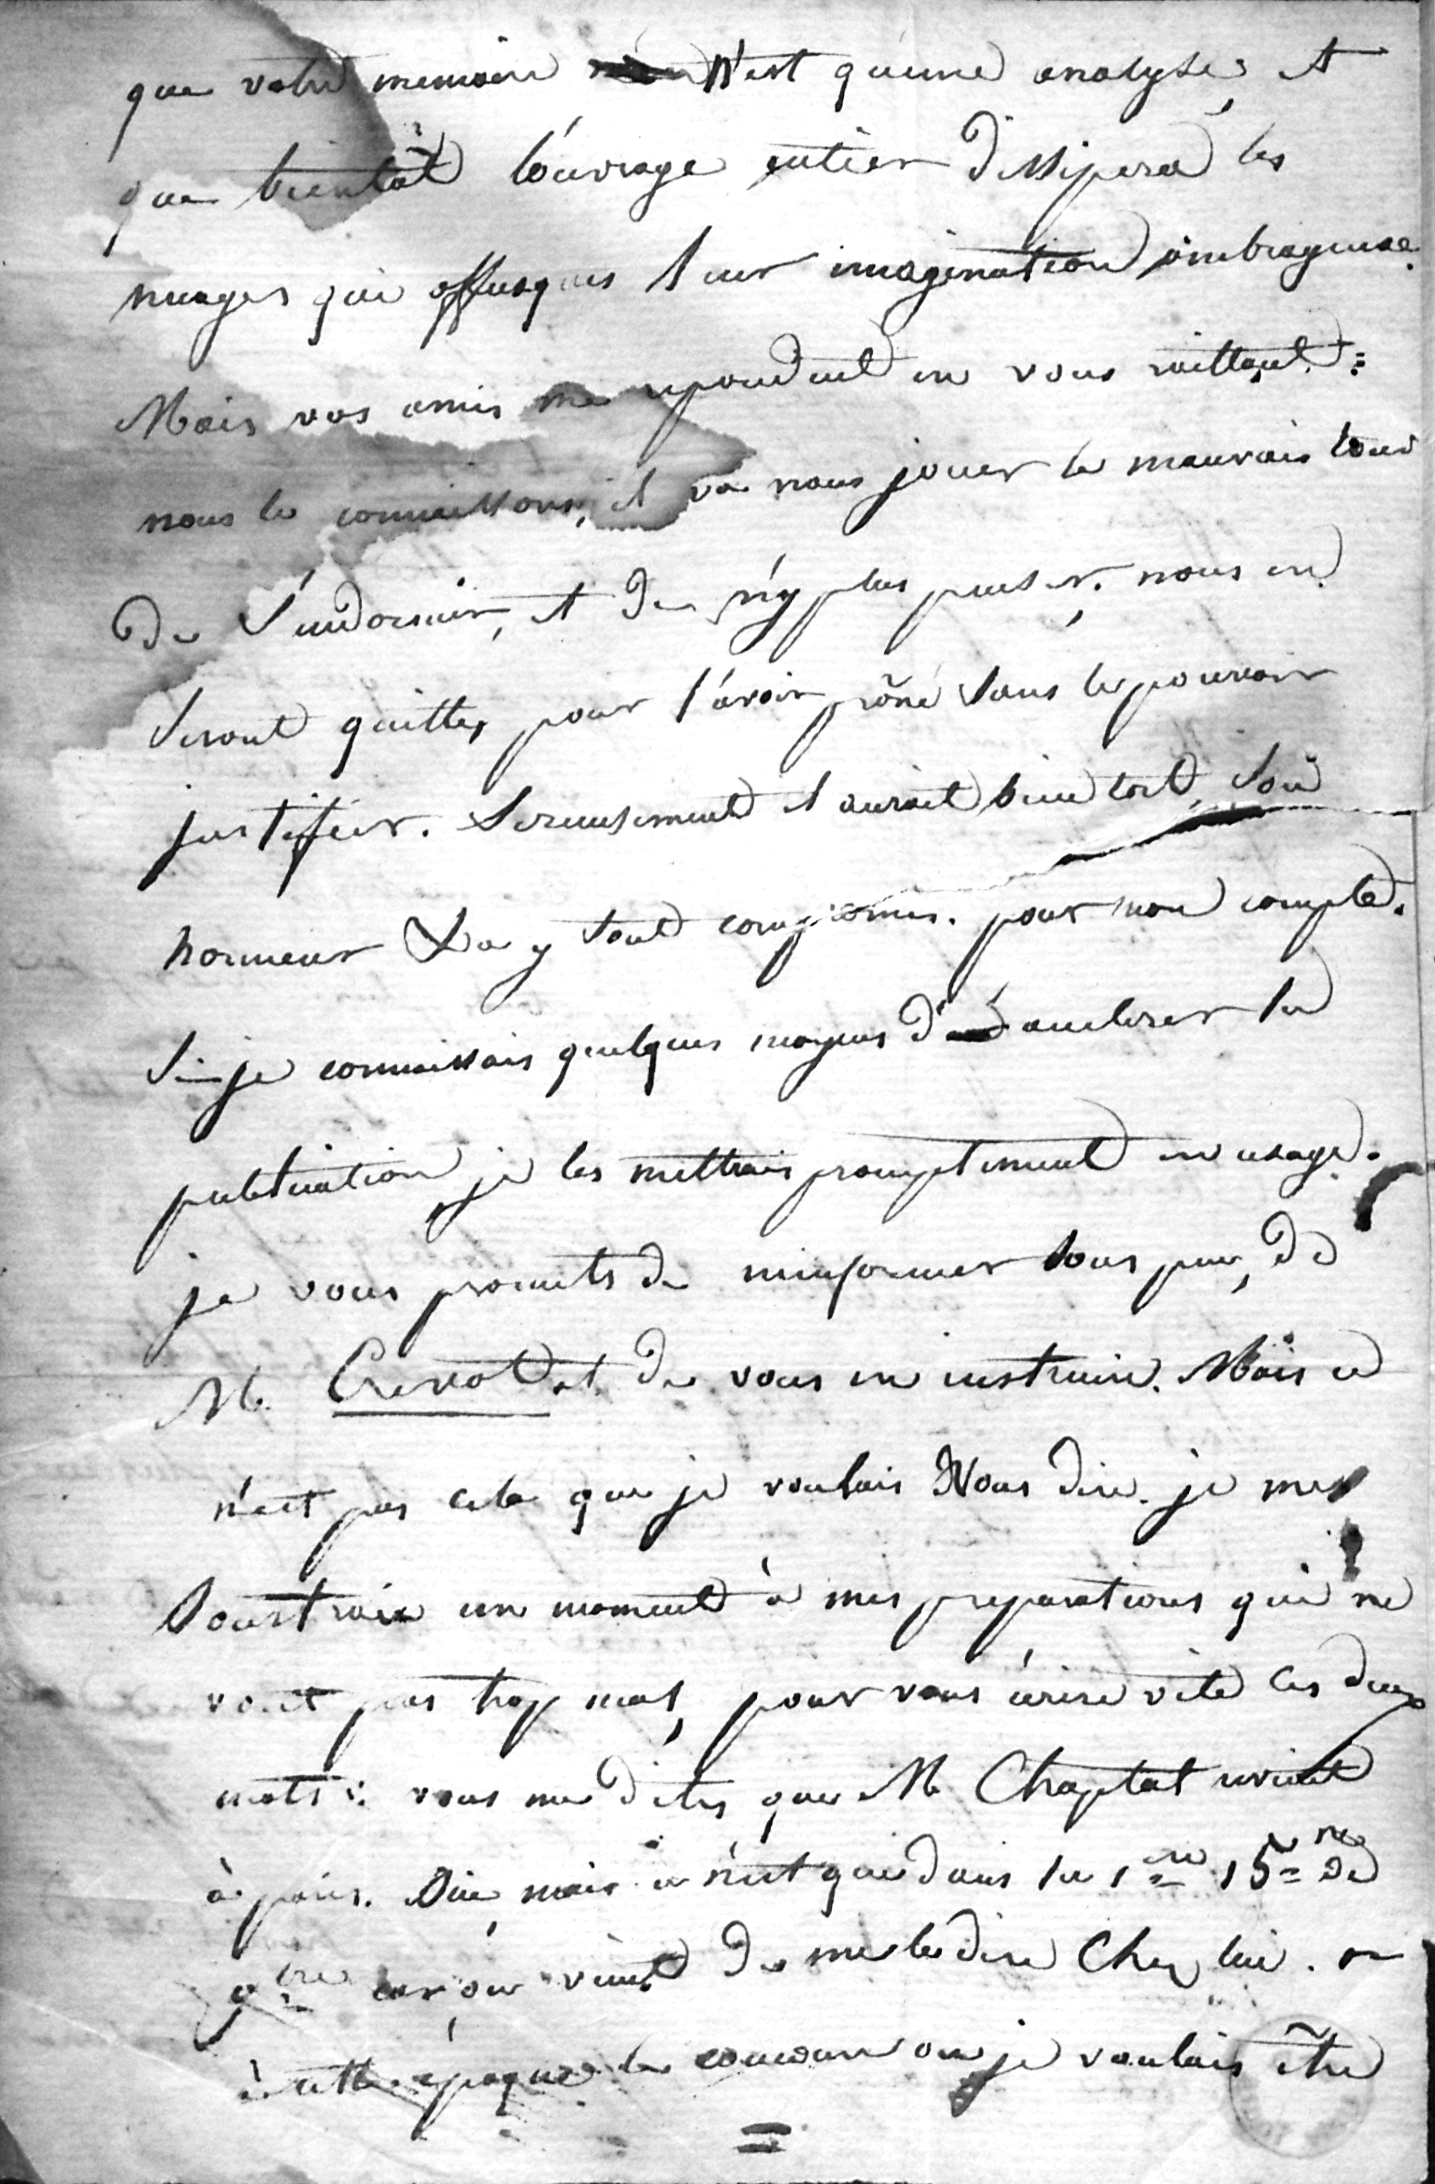 que votre memoire n'est qu'une analyse, et
que bientôt l'ouvrage entier dissipera les
nuages qui offusques leur imagination ombrageuse.
Mais vos amis me repondent en vous raillant:
nous le connaissons, il va nous jouer le mauvais tour
de s'endormir, et de n'y plus penser. nous en
seront quittes pour l'avoir prôné sans le pouvoir
justifier. Serieusement il aurait bien tort, son
honneur y tout compromis. pour mon compte.
Si je connaissais quelques moyens d'accelerer la
publication, je les mettrais promptement en usage.
je vous promets de m'informer sous peu, de
M. Crevot et de vous en instruire. Mais ce
n'est pas cela que je voulais Vous dire. je me
soustraie un moment à mes preparations qui ne
vont pas trop mal, pour vous écrire vite ces deux
mots: vous me dites que M Chaptal revient
à paris. Oui mais ce n'est que dans la 1ere 15ne de
9bre car on vient de me le dire Chez lui. or
à cette époque le concour ou je voulais être